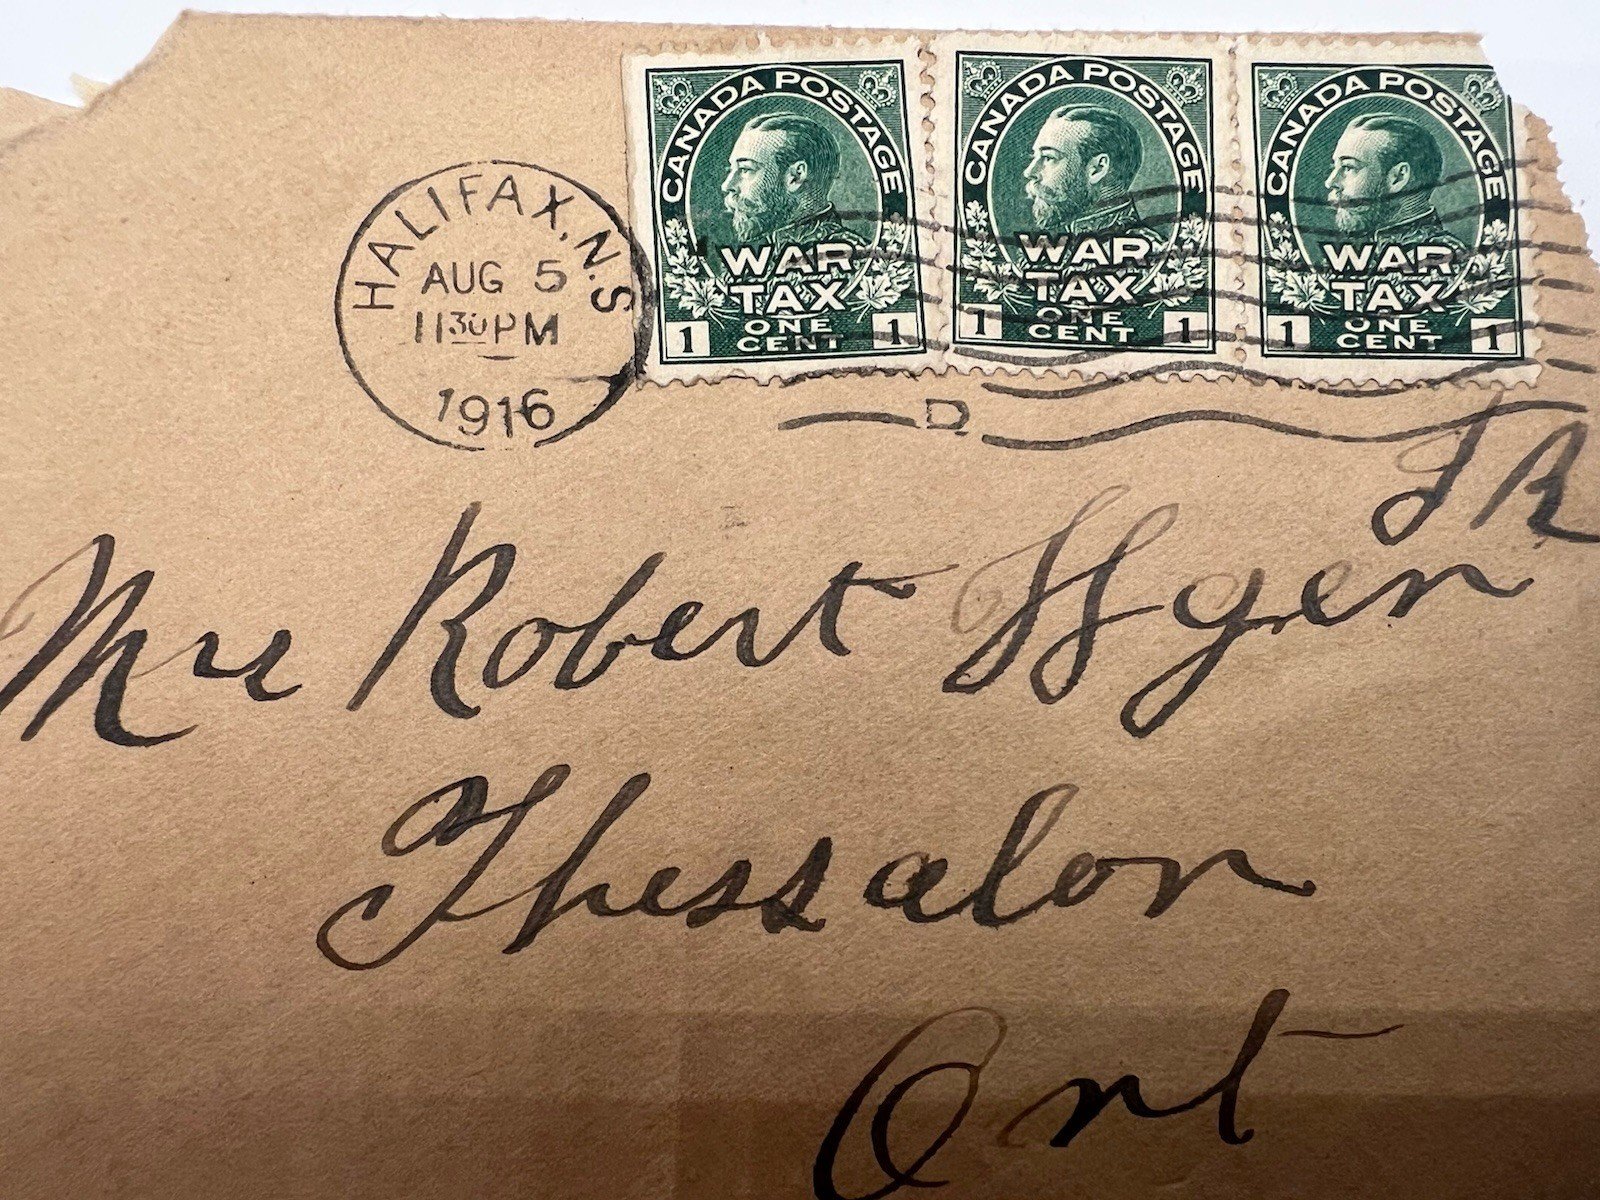 CANADA POSTAGE
WAR
TAX
ONE
CENT
1 1
CANADA POSTAGE
WAR
TAX
ONE
CENT
1 1
CANADA POSTAGE
WAR
TAX
ONE
CENT
1 1
HALIFAX, N.S
AUG 5
1130PM
1916
D
JR
Robert Hgen
Thessalon
Ont